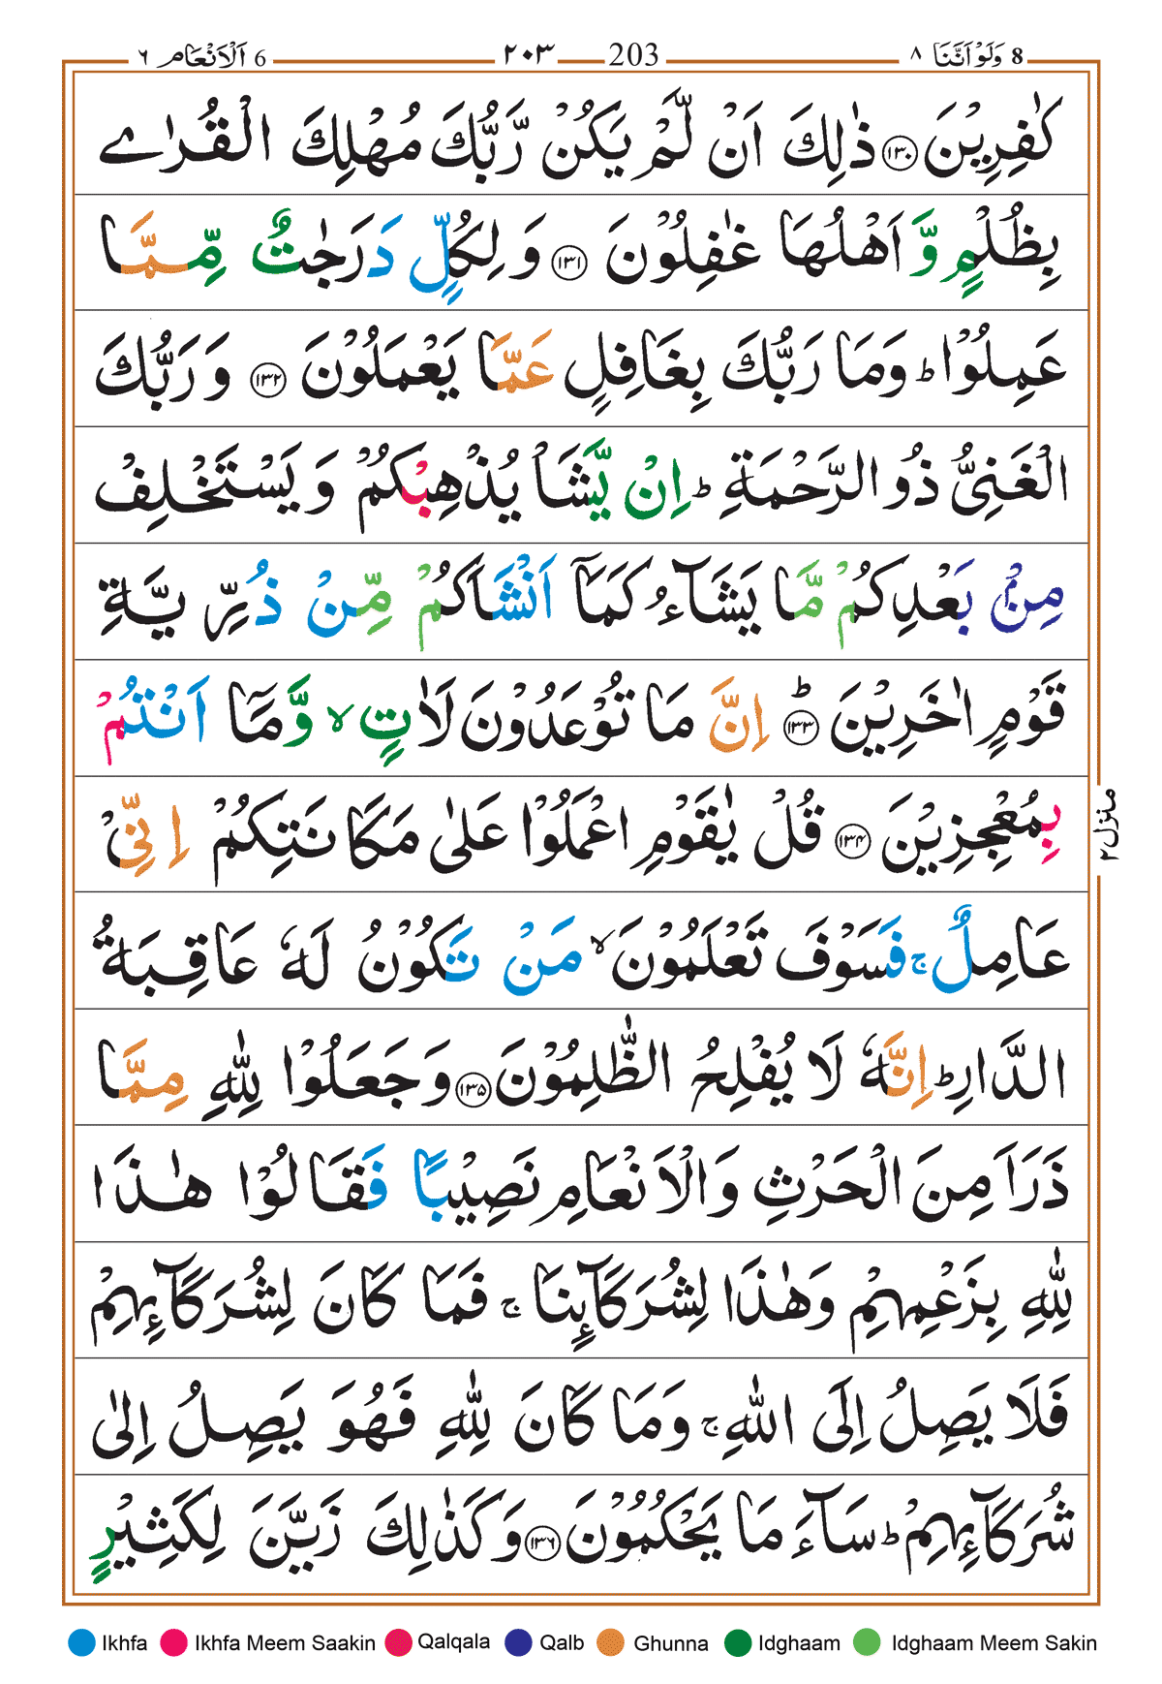 8 وَلَوْ اَنَّنَا ٨ 203 ٢٠٣ 6 اَلْاَنْعَام ٦
كٰفِرِيْنَ ١٣٠ ذٰلِكَ اَنْ لَّمْ يَكُنْ رَّبُّكَ مُهْلِكَ الْقُرٰى
بِظُلْمٍ وَّ اَهْلُهَا غٰفِلُوْنَ ١٣١ وَ لِكُلٍّ دَرَجٰتٌ مِّمَّا
عَمِلُوْا ؕ وَمَا رَبُّكَ بِغَافِلٍ عَمَّا يَعْمَلُوْنَ ١٣٢ وَ رَبُّكَ
الْغَنِىُّ ذُو الرَّحْمَةِ ؕ اِنْ يَّشَاْ يُذْهِبْكُمْ وَ يَسْتَخْلِفْ
مِنْۢ بَعْدِكُمْ مَّا يَشَآءُ كَمَاۤ اَنْشَاَكُمْ مِّنْ ذُرِّيَّةِ
قَوْمٍ اٰخَرِيْنَ ؕ ١٣٣ اِنَّ مَا تُوْعَدُوْنَ لَاٰتٍ ۙ وَّمَاۤ اَنْتُمْ
بِمُعْجِزِيْنَ ١٣٤ قُلْ يٰقَوْمِ اعْمَلُوْا عَلٰى مَكَانَتِكُمْ اِنِّىْ
عَامِلٌ ۚ فَسَوْفَ تَعْلَمُوْنَ ۙ مَنْ تَكُوْنُ لَهٗ عَاقِبَةُ
الدَّارِ ؕ اِنَّهٗ لَا يُفْلِحُ الظّٰلِمُوْنَ ١٣٥ وَ جَعَلُوْا لِلّٰهِ مِمَّا
ذَرَاَ مِنَ الْحَرْثِ وَالْاَنْعَامِ نَصِيْبًا فَقَالُوْا هٰذَا
لِلّٰهِ بِزَعْمِهِمْ وَهٰذَا لِشُرَكَآٮِٕنَا ۚ فَمَا كَانَ لِشُرَكَآٮِٕهِمْ
فَلَا يَصِلُ اِلَى اللّٰهِ ۚ وَمَا كَانَ لِلّٰهِ فَهُوَ يَصِلُ اِلٰى
شُرَكَآٮِٕهِمْ ؕ سَآءَ مَا يَحْكُمُوْنَ ١٣٦ وَ كَذٰلِكَ زَيَّنَ لِكَثِيْرٍ
منزل ٢
Ikhfa Ikhfa Meem Saakin Qalqala Qalb Ghunna Idghaam Idghaam Meem Sakin